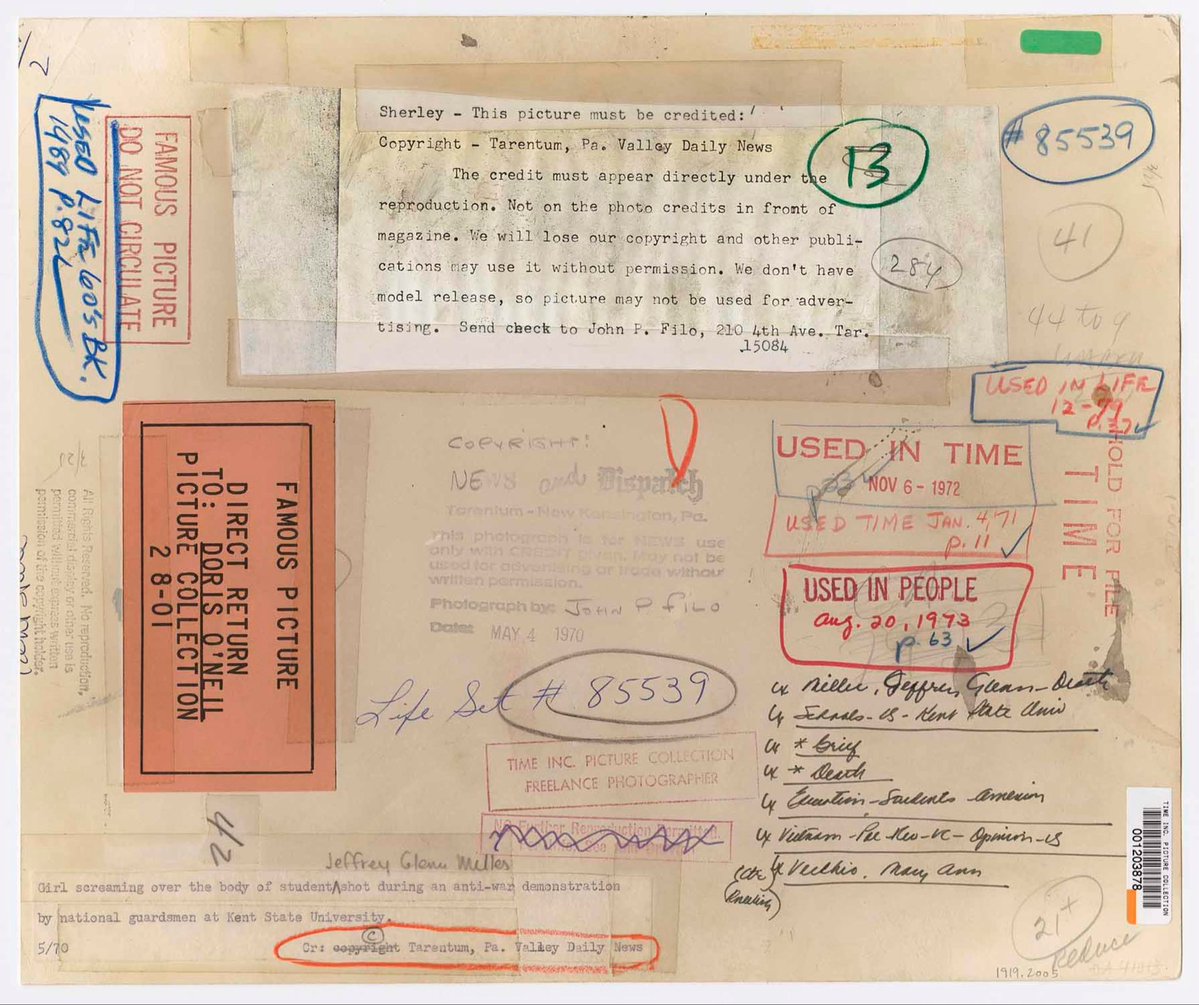 Sherley - This picture must be credited:
Copyright - Tarentum, Pa. Valley Daily News
The credit must appear directly under the
reproduction. Not on the photo credits in front of
magazine. We will lose our copyright and other publi-
cations may use it without permission. We don't have
model release, so picture may not be used for adver-
tising. Send check to John P. Filo, 210 4th Ave. Tar.
15084
13
284
# 85539
41
44 to 9
USED LIFE 60's BK.
1989 P. 82
FAMOUS PICTURE
DO NOT CIRCULATE
USED IN LIFE
12-79
p.37
HOLD FOR FILE
TIME
FAMOUS PICTURE
DIRECT RETURN
TO: DORIS O'NEIL
PICTURE COLLECTION
28-01
All Rights Reserved. No reproduction,
commercial display or other use is
permitted without express written
permission of the copyright holder.
COPYRIGHT:
NEWS and Dispatch
Tarentum - New Kensington, Pa.
This photograph is for NEWS use
only with CREDIT given. May not be
used for advertising or trade without
written permission.
Photograph by: JOHN P FILO
Date: MAY 4 1970
USED IN TIME
NOV 6 - 1972
USED TIME JAN. 4, '71
p. 11
USED IN PEOPLE
Aug. 20, 1973
p. 63
Life Set # 85539
TIME INC. PICTURE COLLECTION
FREELANCE PHOTOGRAPHER
No Further Reproduction Permitted.
Miller, Jeffrey Glenn - Death
Schools - US - Kent State Univ
* Grief
* Death
Education - Students - American
Vietnam - - VC - Opinion - US
Vecchio, Mary Ann
(Kneeling)
42
Jeffrey Glenn Miller
Girl screaming over the body of student shot during an anti-war demonstration
by national guardsmen at Kent State University.
5/70
Cr: copyright © Tarentum, Pa. Valley Daily News
TIME INC. PICTURE COLLECTION
001203878
21+
Reduce
1919.2005